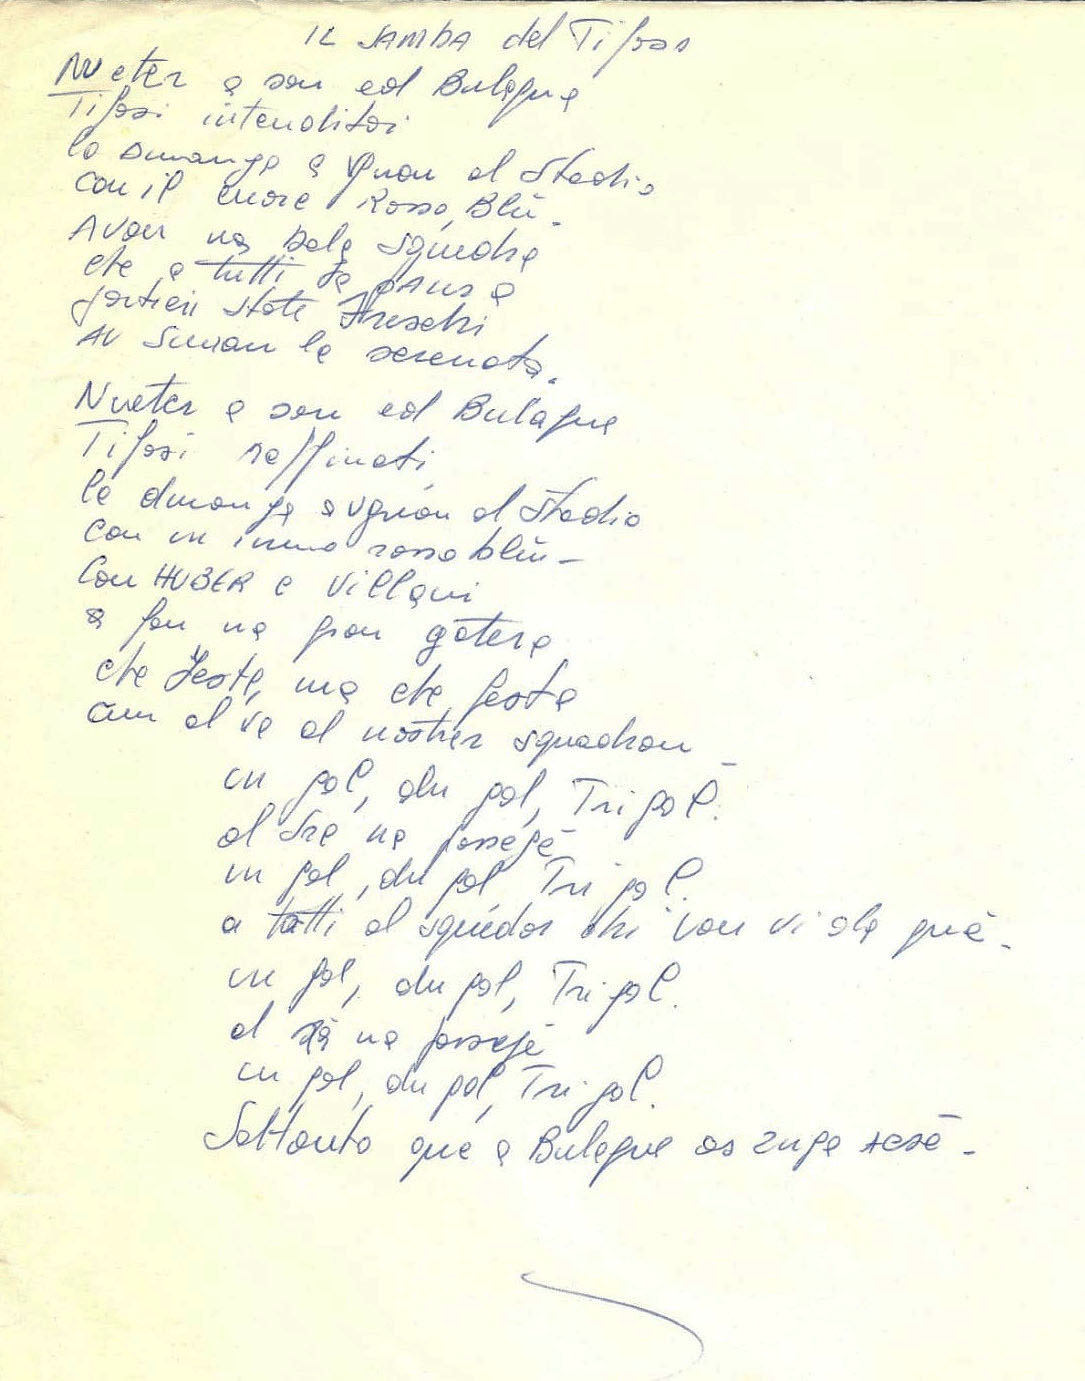 IL SAMBA del Tifoso
Nueter a son ed Bulagna
Tifosi intenditori
la dmanga a vgnan al Stadio
con il cuore Rosso, Blù.
Avan na bela squedra
che a tutti fa paura
portieri state freschi
Av sunan la serenata.
Nueter a son ed Bulagna
Tifosi raffinati,
la dmanga a vgnan al Stadio
con un inno rosso blù -
Con HUBER e Villani
a fan na gran gatera
che festa, ma che festa
cun al va al noster squadron -
un gol, du gol, Tri gol.
al srà na passegè
un gol, du gol Tri gol.
a tutti al squedar chi van vi ala què -
un gol, du gol, Tri gol.
al srà na passegè
un gol, du gol, Tri gol.
Soltanto què a Bulagna as zuga acsè -